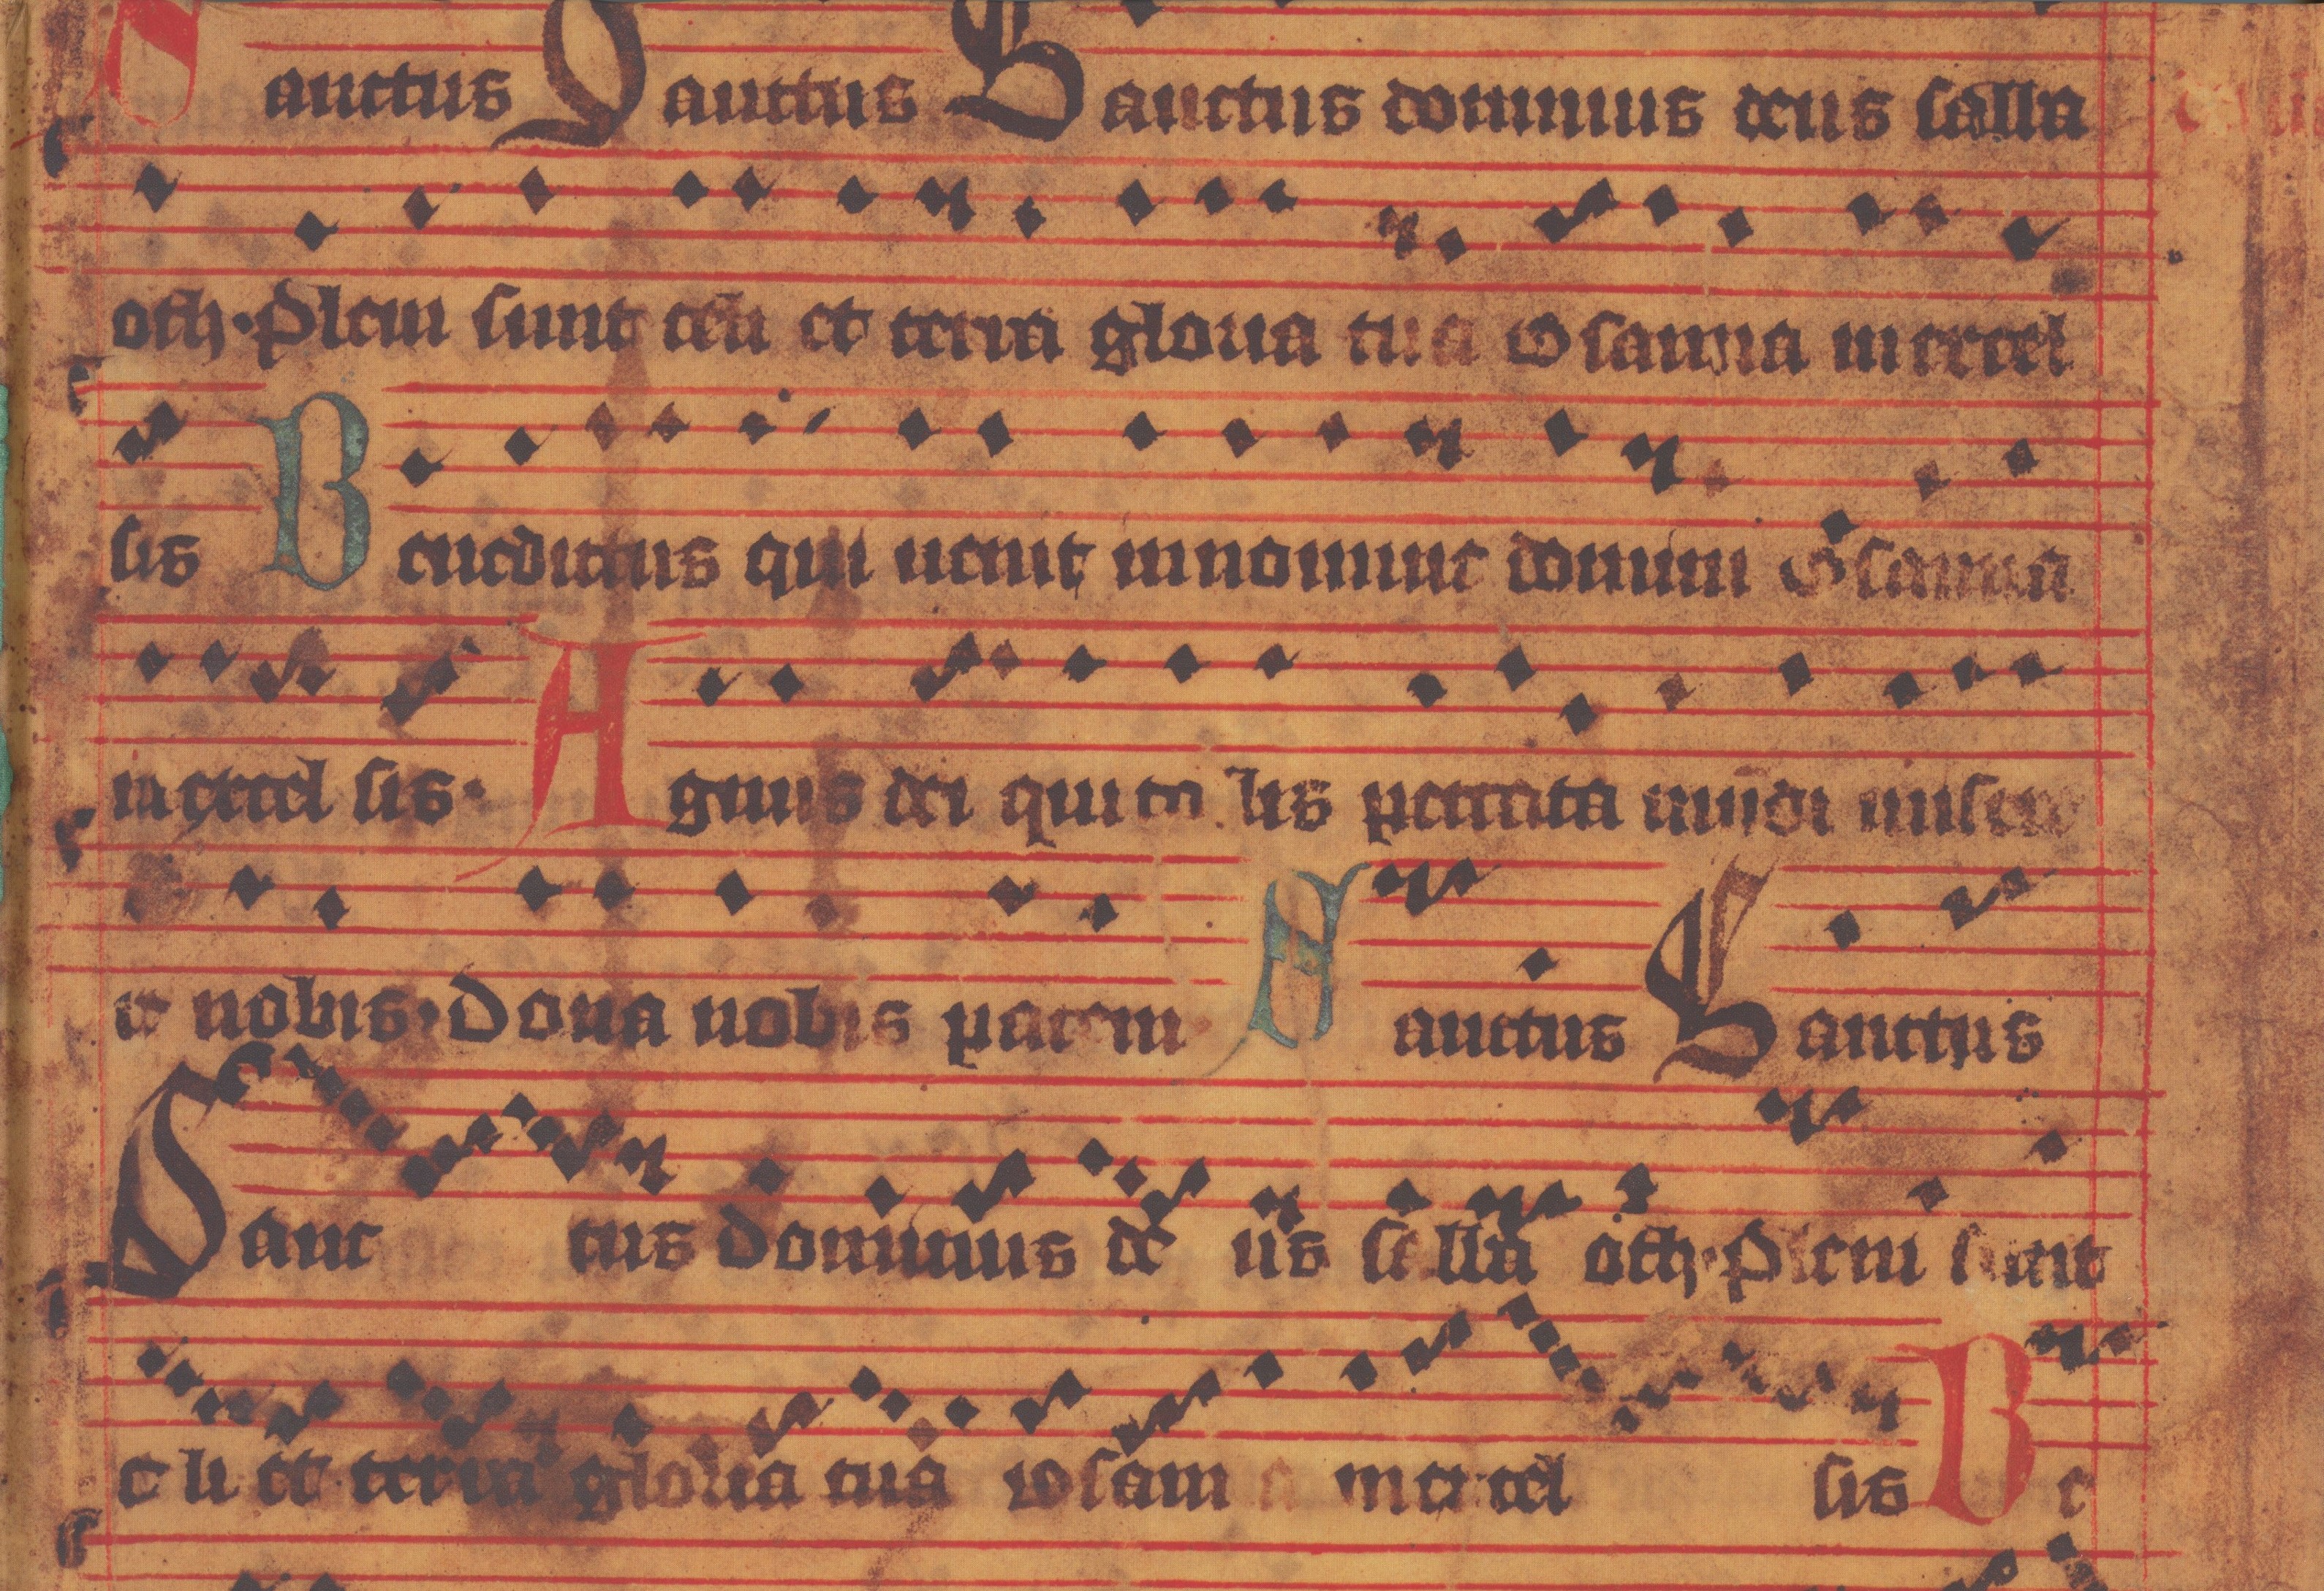 Sanctus Sanctus Sanctus dominus deus saba
oth · Pleni sunt celi et terra gloria tua Osanna in excel
sis Benedictus qui uenit in nomine domini Osanna
in excel sis · Agnus dei qui tol lis peccata mundi misere
re nobis · Dona nobis pacem Sanctus Sanctus
Sanc tus dominus de us saba oth · Pleni sunt
ce li et terra gloria tua osanna in excel sis Be